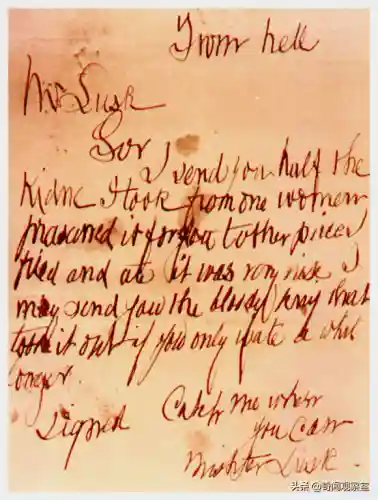 From hell
Mr Lusk
Sor
I send you half the
Kidne I took from one women
prasarved it for you tother piece I
fried and ate it was very nise I
may send you the bloody knif that
took it out if you only wate a whil
longer.
signed
Catch me when
you Can
Mishter Lusk.
头条 @奇闻观察室